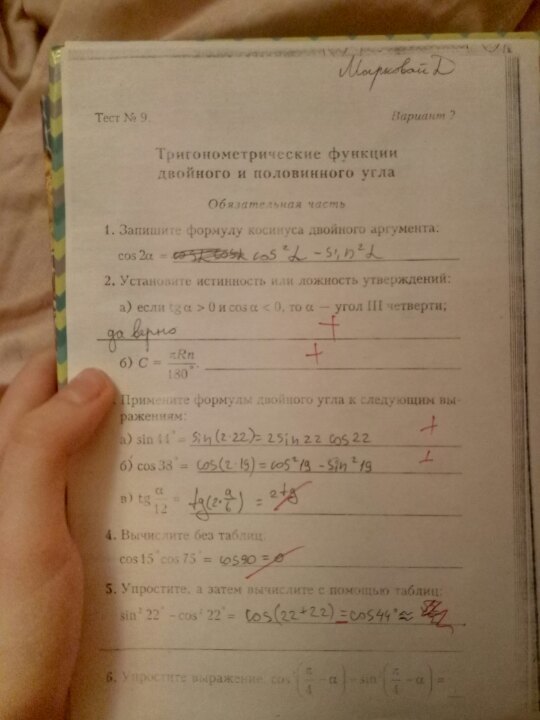 Марковой Д
Тест № 9. Вариант 2
Тригонометрические функции
двойного и половинного угла
Обязательная часть
1. Запишите формулу косинуса двойного аргумента:
cos 2α = cos²α – sin²α
2. Установите истинность или ложность утверждений:
а) если tg α > 0 и cos α < 0, то α — угол III четверти;
да верно +
б) C = πRn/180°. +
Примените формулы двойного угла к следующим вы-
ражениям:
а) sin 44° = sin(2·22) = 2sin22 cos22 +
б) cos 38° = cos(2·19) = cos²19 – sin²19 +
в) tg α/12 = tg(2· /6) = 2tg
4. Вычислите без таблиц:
cos 15° cos 75° = cos90 = 0
5. Упростите, а затем вычислите с помощью таблиц:
sin² 22° – cos² 22° = cos(22+22) = cos44° ≈
6. Упростите выражение: cos²(π/4 – α) – sin²(π/4 – α) =